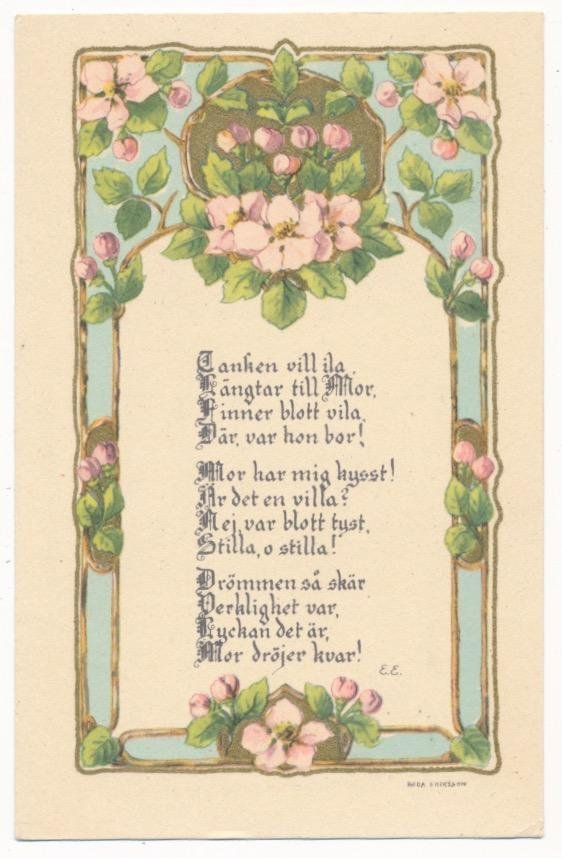 Tanken vill ila,
Längtar till Mor,
Finner blott vila,
Där, var hon bor!
Mor har mig kysst!
Är det en villa?
Nej, var blott tyst,
Stilla, o stilla!
Drömmen så skär
Verklighet var,
Lyckan det är,
Mor dröjer kvar!
E.E.